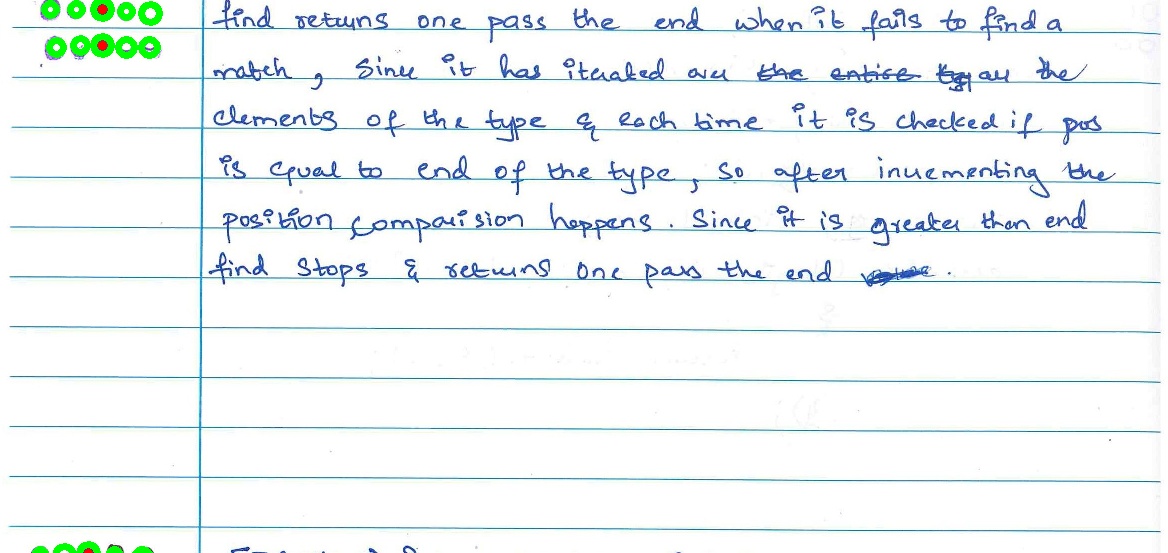 find returns one pass the end when it fails to find a
match, Since it has iterated over the entire all the
elements of the type & each time it is checked if pos
is equal to end of the type, so after incrementing the
position comparision happens. Since it is greater than end
find stops & returns one pass the end